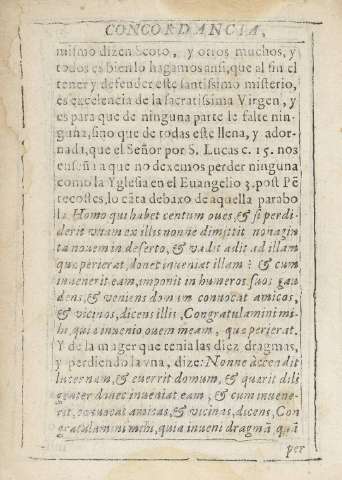 CONCORDANCIA,
mismo dizen Scoto, y otros muchos, y
todos es bien lo hagamos ansi, que al fin el
tener y defender este santissimo misterio,
es excelencia de la sacratissima Virgen, y
es para que de ninguna parte le falte nin-
guna, sino que de todas este llena, y ador-
nada, que el Señor por S. Lucas c. 15. nos
enseña a que no dexemos perder ninguna
como la Yglesia en el Euangelio 3. post Pẽ
tecostes, lo cãta debaxo de aquella parabo
la Homo qui habet centum oues, & si perdi-
derit vnam ex illis nonne dimittit nonagin
ta nouem in deserto, & vadit ad illam
quæ perierat, donec inueniat illam? & cum
inuenerit eam, imponit in humeros suos gau
dens, & veniens domum conuocat amicos,
& vicinos, dicens illis, Congratulamini mi-
hi, quia inuenio ouem meam, quæ perierat.
Y de la muger que tenia las diez dragmas,
y perdiendo la vna, dize: Nonne accendit
lucernam, & euerrit domum, & quærit dili
genter donec inueniat eam, & cum inuene-
rit, conuocat amicas, & vicinas, dicens, Con
gratulamini mihi, quia inueni dragmã quã
per